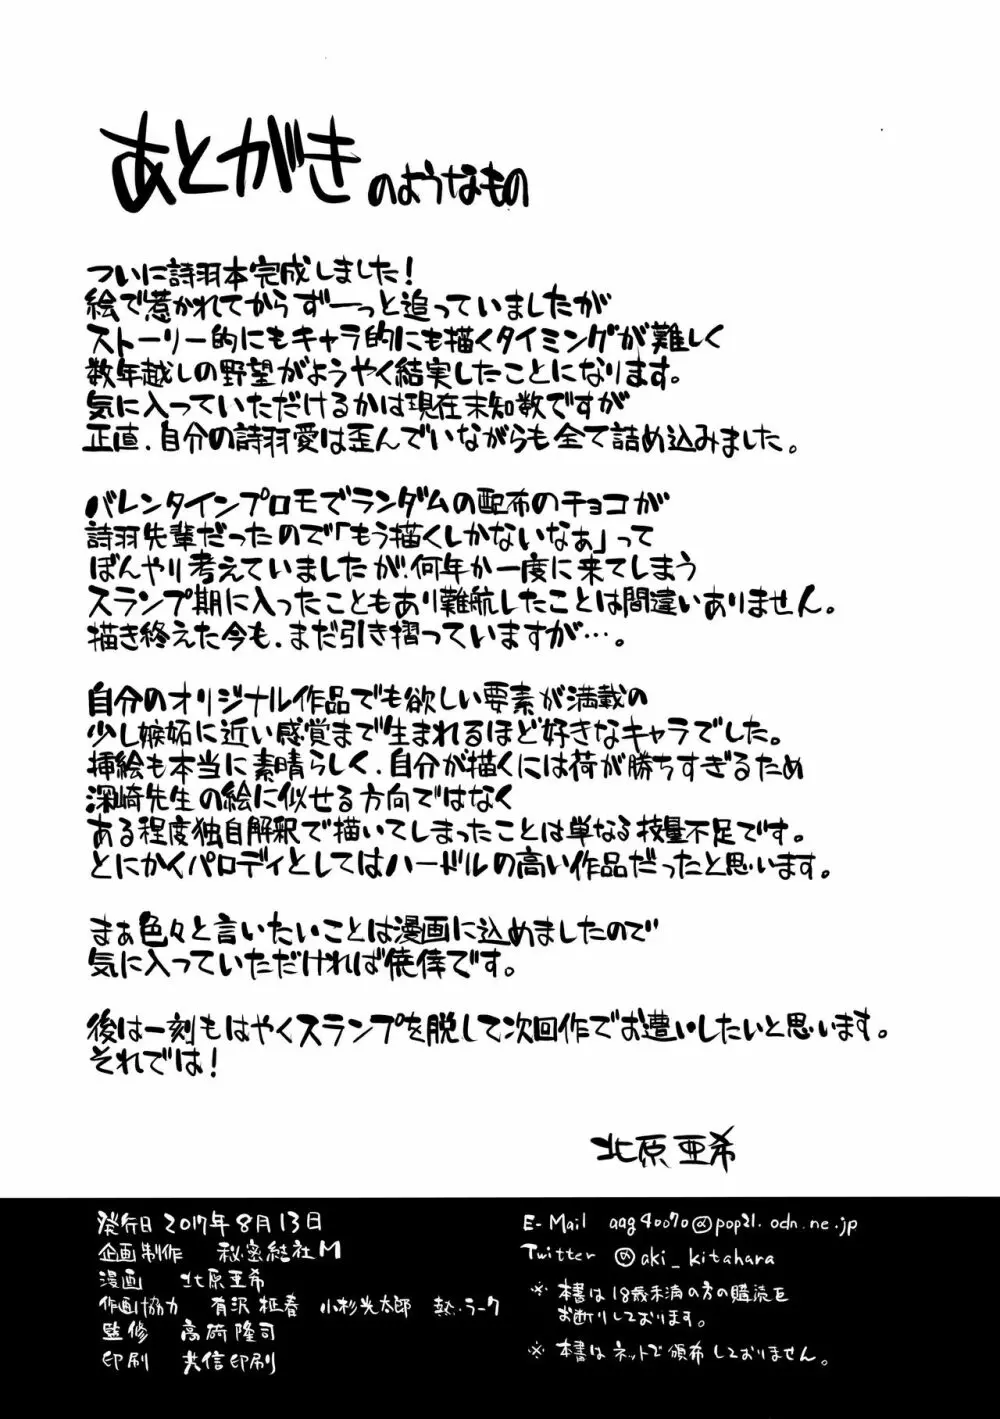 あとがきのようなもの
ついに詩羽本完成しました!
絵で惹かれてからずーっと追っていましたが
ストーリー的にもキャラ的にも描くタイミングが難しく
数年越しの野望がようやく結実したことになります。
気に入っていただけるかは現在未知数ですが
正直、自分の詩羽愛は歪んでいながらも全て詰め込みました。
バレンタインプロモでランダムの配布のチョコが
詩羽先輩だったので「もう描くしかないなぁ」って
ぼんやり考えていましたが、何年か一度に来てしまう
スランプ期に入ったこともあり難航したことは間違いありません。
描き終えた今も、まだ引き摺っていますが…。
自分のオリジナル作品でも欲しい要素が満載の
少し嫉妬に近い感覚まで生まれるほど好きなキャラでした。
挿絵も本当に素晴らしく、自分が描くには荷が勝ちすぎるため
深崎先生の絵に似せる方向ではなく
ある程度独自解釈で描いてしまったことは単なる技量不足です。
とにかくパロディとしてはハードルの高い作品だったと思います。
まぁ色々と言いたいことは漫画に込めましたので
気に入っていただければ僥倖です。
後は一刻もはやくスランプを脱して次回作でお遭いしたいと思います。
それでは!
北原亜希
発行日 2017年8月13日
企画制作 秘密結社M
漫画 北原亜希
作画協力 有沢 柾春 小杉光太郎 熱・ラーク
監修 高碕 隆司
印刷 共信印刷
E-Mail aag40070@pop21.odn.ne.jp
Twitter @aki_kitahara
※ 本書は18歳未満の方の購読を
お断りしております。
※ 本書はネットで頒布しておりません。